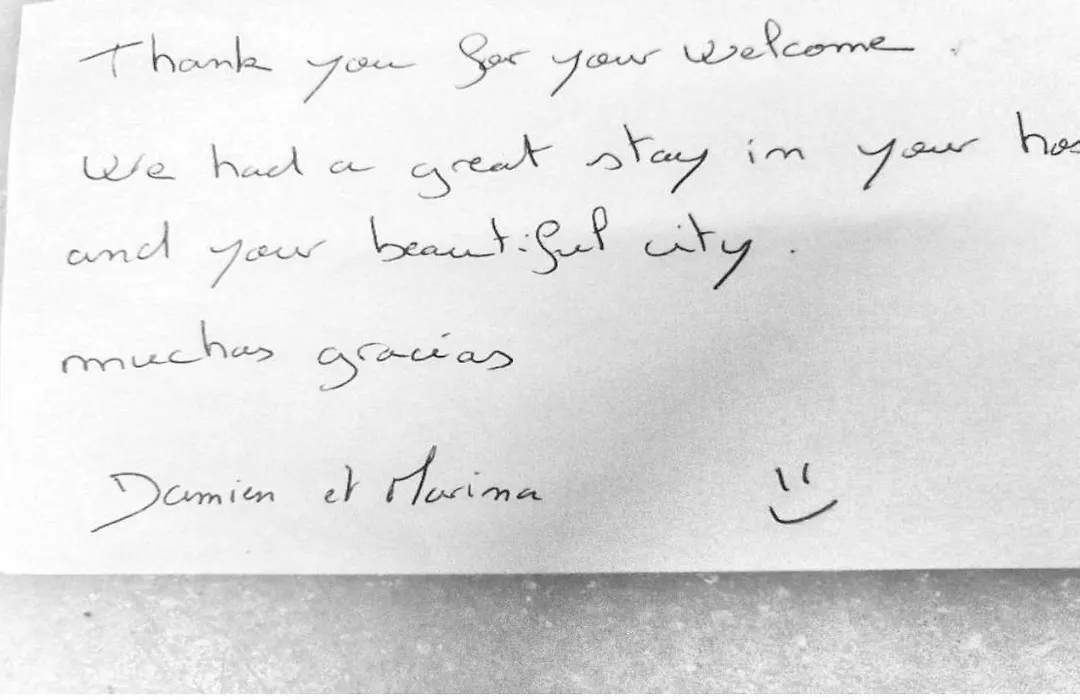 Thank you for your welcome.
We had a great stay in your hos
and your beautiful city.
muchas gracias
Damien et Marina